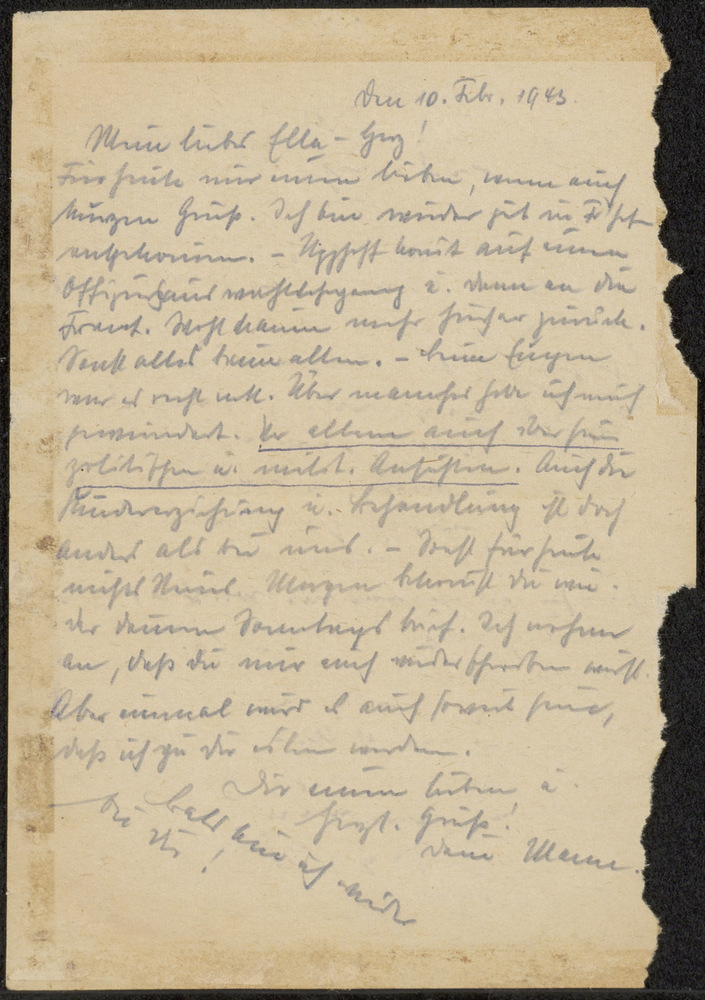 Den 10. Febr. 1943.
Mein liebes Ella-Herz!
Für heute nur einen lieben, wenn auch
kurzen Gruß. Ich bin wieder gut in
angekommen. - kommt auf einen
Offiziersauswahllehrgang u. dann an die
Front. Wohl kaum mehr hierher zurück.
Sonst alles beim alten. - Beim Eugen
war es recht nett. Über manches habe ich mich
gewundert. Vor allem auch über seine
politischen u. milit. Ansichten. Auch die
Kindererziehung u. Behandlung ist doch
anders als bei uns. - Sonst für heute
nichts Neues. Morgen bekommst du wie-
der deinen Sonntagsbrief. Ich nehme
an, daß du mir auch wieder schreiben wirst.
Aber einmal wird es auch soweit sein,
daß ich zu dir eilen werde.
Dir einen lieben u.
herzl. Gruß!
Dein Mann.
Bald bin ich wieder
bei